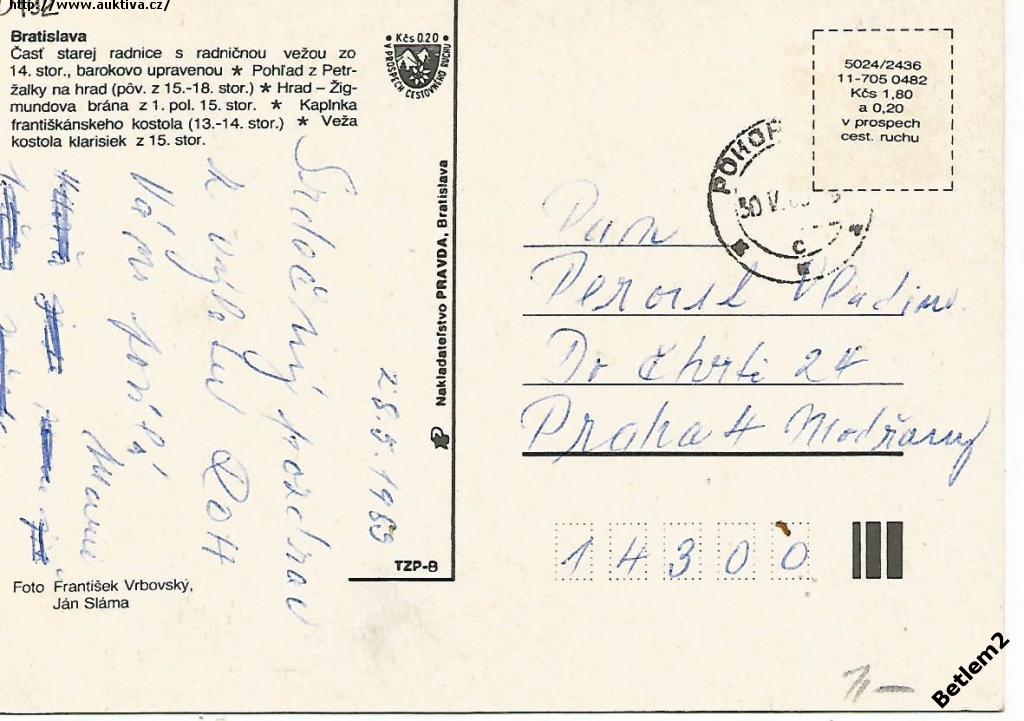 http://www.auktiva.cz/
Bratislava
Časť starej radnice s radničnou vežou zo
14. stor., barokovo upravenou * Pohľad z Petr-
žalky na hrad (pôv. z 15.-18. stor.) * Hrad – Žig-
mundova brána z 1. pol. 15. stor. * Kaplnka
františkánskeho kostola (13.-14. stor.) * Veža
kostola klarisiek z 15. stor.
Kčs 0.20
V PROSPECH CESTOVNÉHO RUCHU
5024/2436
11-705 0482
Kčs 1,80
a 0,20
v prospech
cest. ruchu
POHOŘ
30 V
C
Srdečný pozdrav
k výletu ROH
Vám posílá
Mami
28 5. 1989
Nakladateľstvo PRAVDA, Bratislava
TZP-8
Pan
Vladimír
Do čtvrti 24
Praha 4 Modřany
14300
Foto František Vrbovský,
Ján Sláma
Betlem2